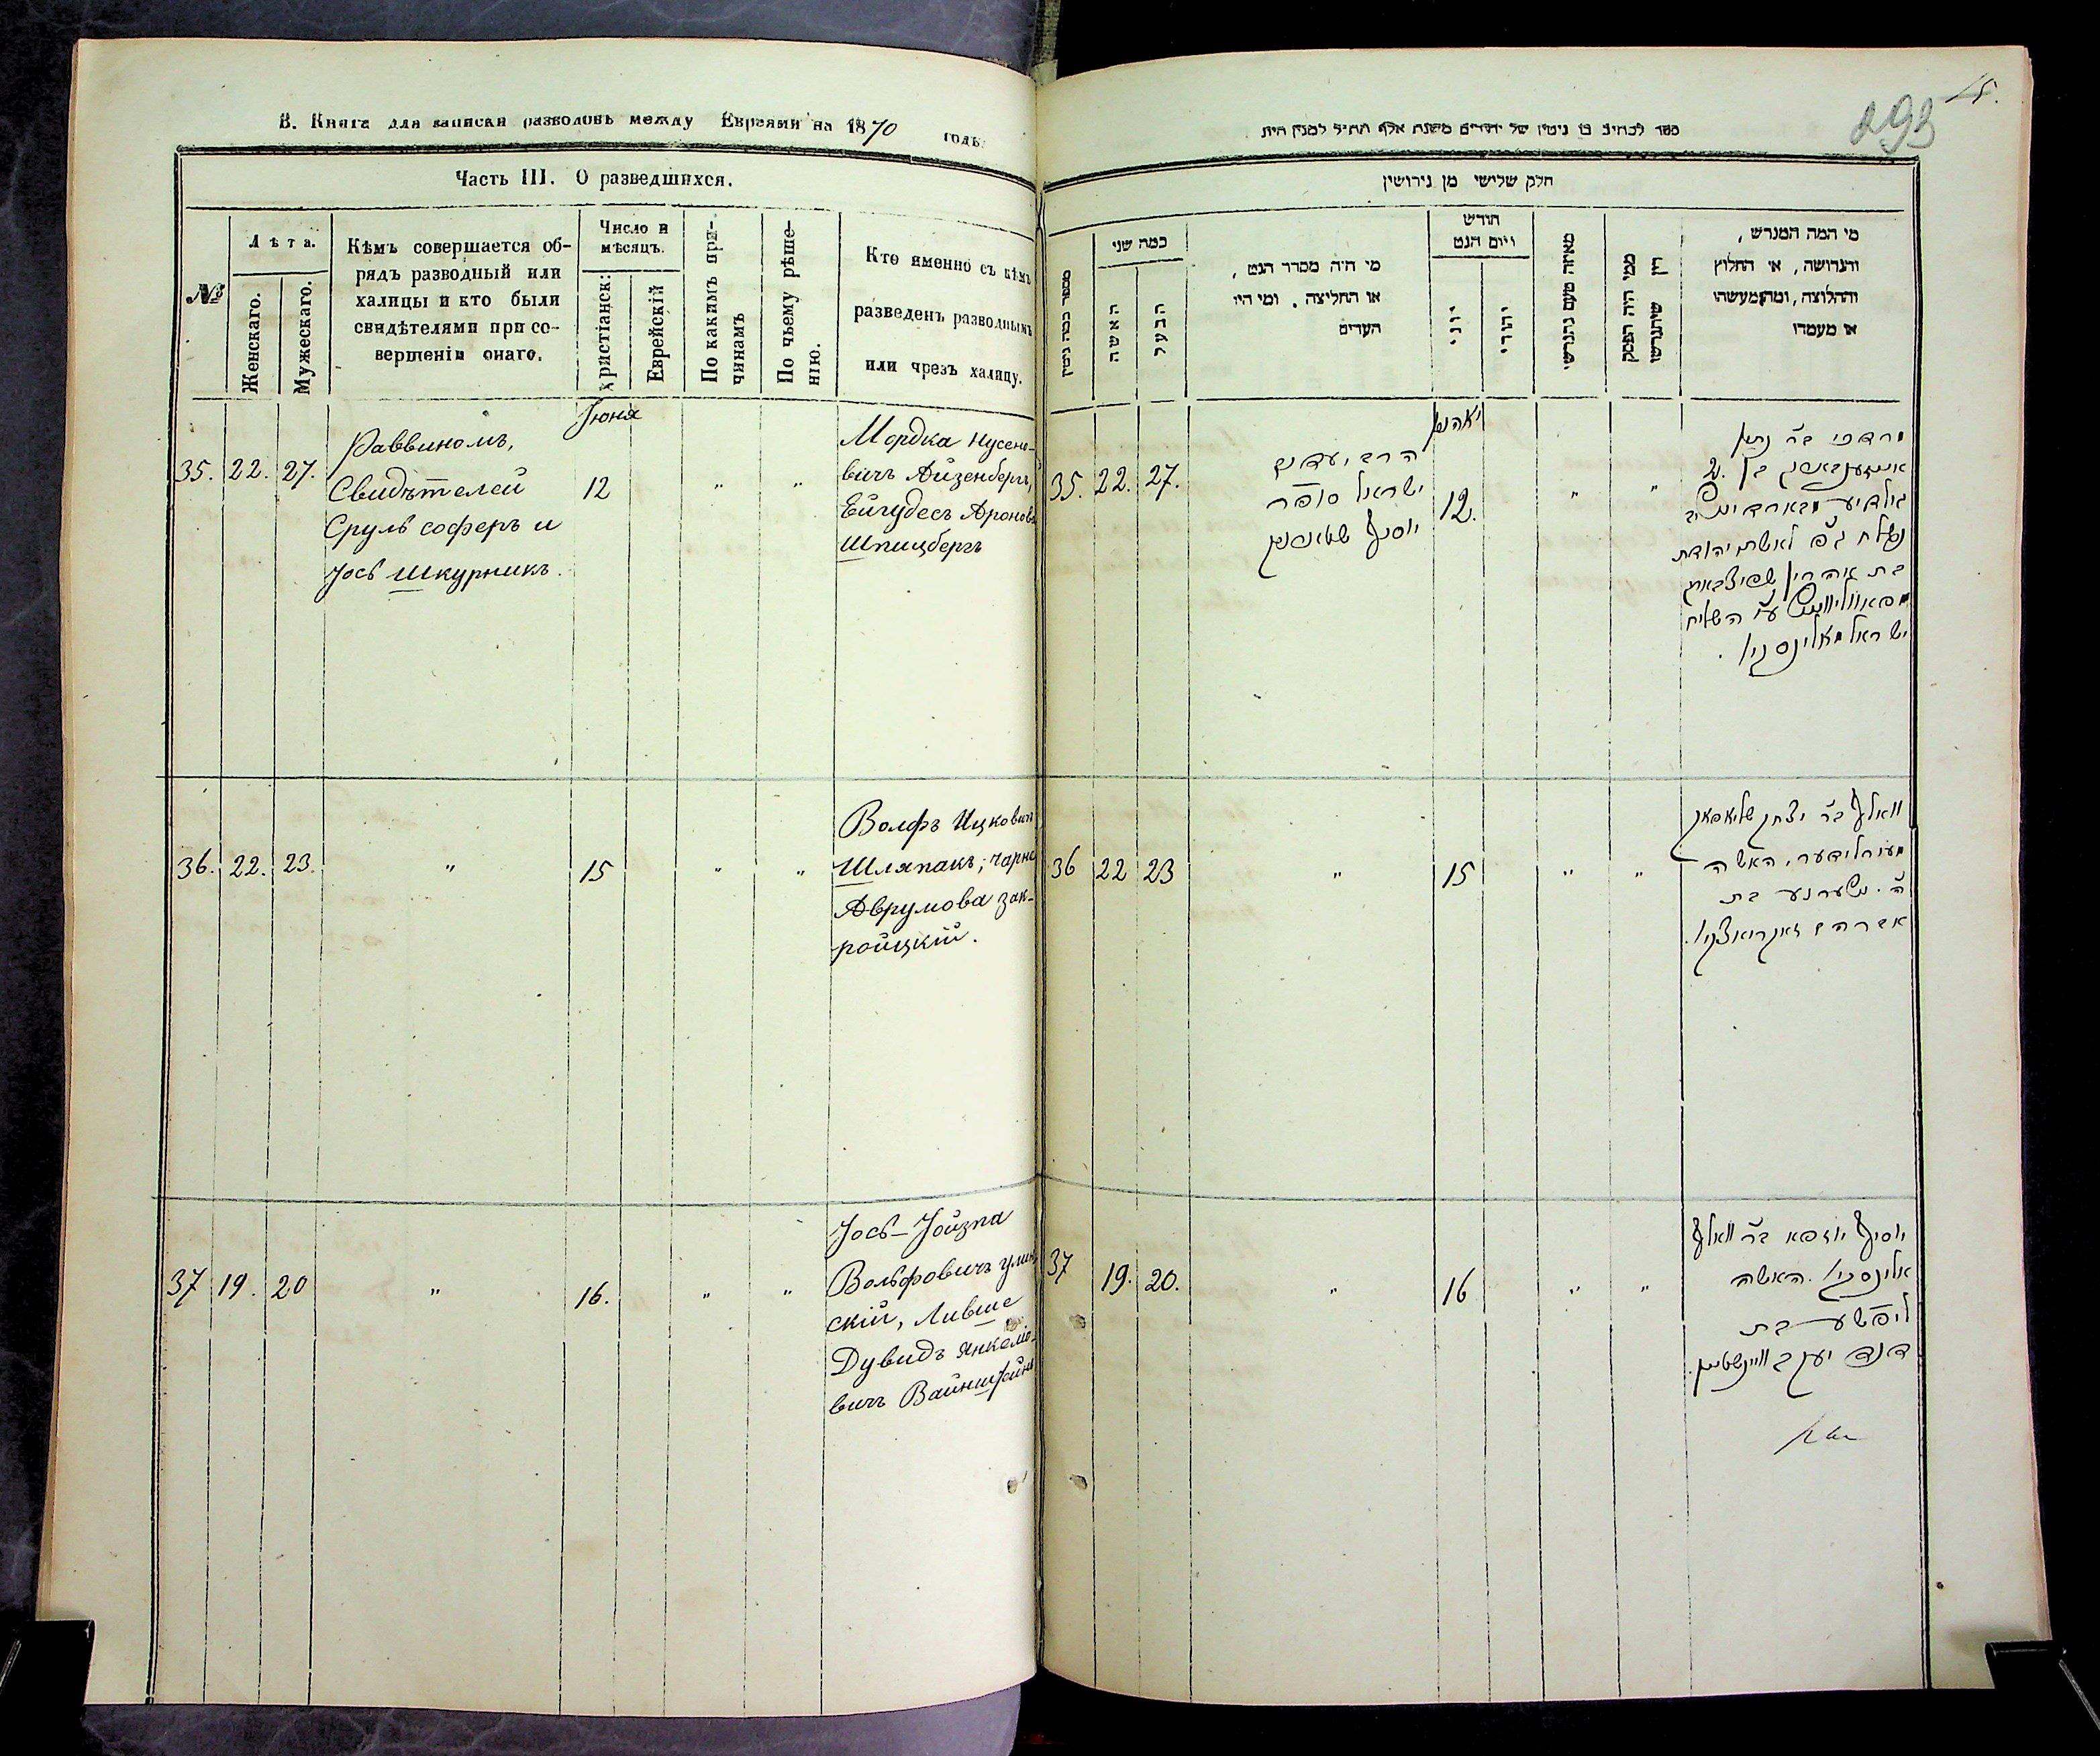 В. Книга для записки разводовъ между Евреями на 1870 годъ
Часть III. О разведшихся.
№
Лѣта.
Женскаго.
Мужескаго.
Кѣмъ совершается об-
рядъ разводный или
халицы и кто были
свидѣтелями при со-
вершеніи онаго.
Число и
мѣсяцъ.
христіанск:
Еврейскій
По какимъ при-
чинамъ
По чьему рѣше-
нію.
Кто именно съ кѣмъ
разведенъ разводнымъ
или чрезъ халицу.
Іюня
35. 22. 27.
Раввиномъ,
Свидѣтелей
Сруль соферъ и
Іось Шкурникъ.
12 " "
Мордка Нусено-
вичъ Айзенбергъ,
Ейгудесъ Аронова
Шпицбергъ
36. 22. 23. " 15 " "
Волфъ Ицковичъ
Шляпакъ, Чарна
Аврумова Зак-
ройцкій.
37 19. 20 " 16. " "
Іось-Іойзпа
Вольфовичъ Улин
скій, Ливше
Дувидъ Янкеліо-
вичъ Вайнштайнъ
15.
293
חלק שלישי מן גירושין
מספר כמה גיטין
כמה שני
האשה
הבעל
מי היה מסדר הגט,
או החליצה. ומי היו
העדים
חודש
ויום הגט
יוני
יהודי
מאיזה טעם נתגרשו
ממי היה הפסק
דין שיתגרשו
מי המה המגרש,
והגרושה, או החלוץ
והחלוצה, ומה מעשהו
או מעמדו
35. 22. 27.
הרב
ישראל סופר
יוסף
12. " "
מרדכי ב״ר נתן
לאשתו יהודת
בת אהרן
ע״י השליח
ישראל
36 22 23 " 15 " "
וואלף ב״ר יצחק שליאפאק
האשה
מ׳ טשערנע בת
אברהם זאקרואצקי.
37 19. 20. " 16 " "
יוסף יוזפא ב״ר וואלף
אלינסקי. האשה
ליפשע בת
דוד יעקב וויינשטיין.